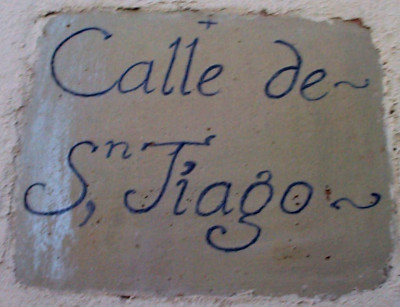 Calle de~
Sn, Tiago~